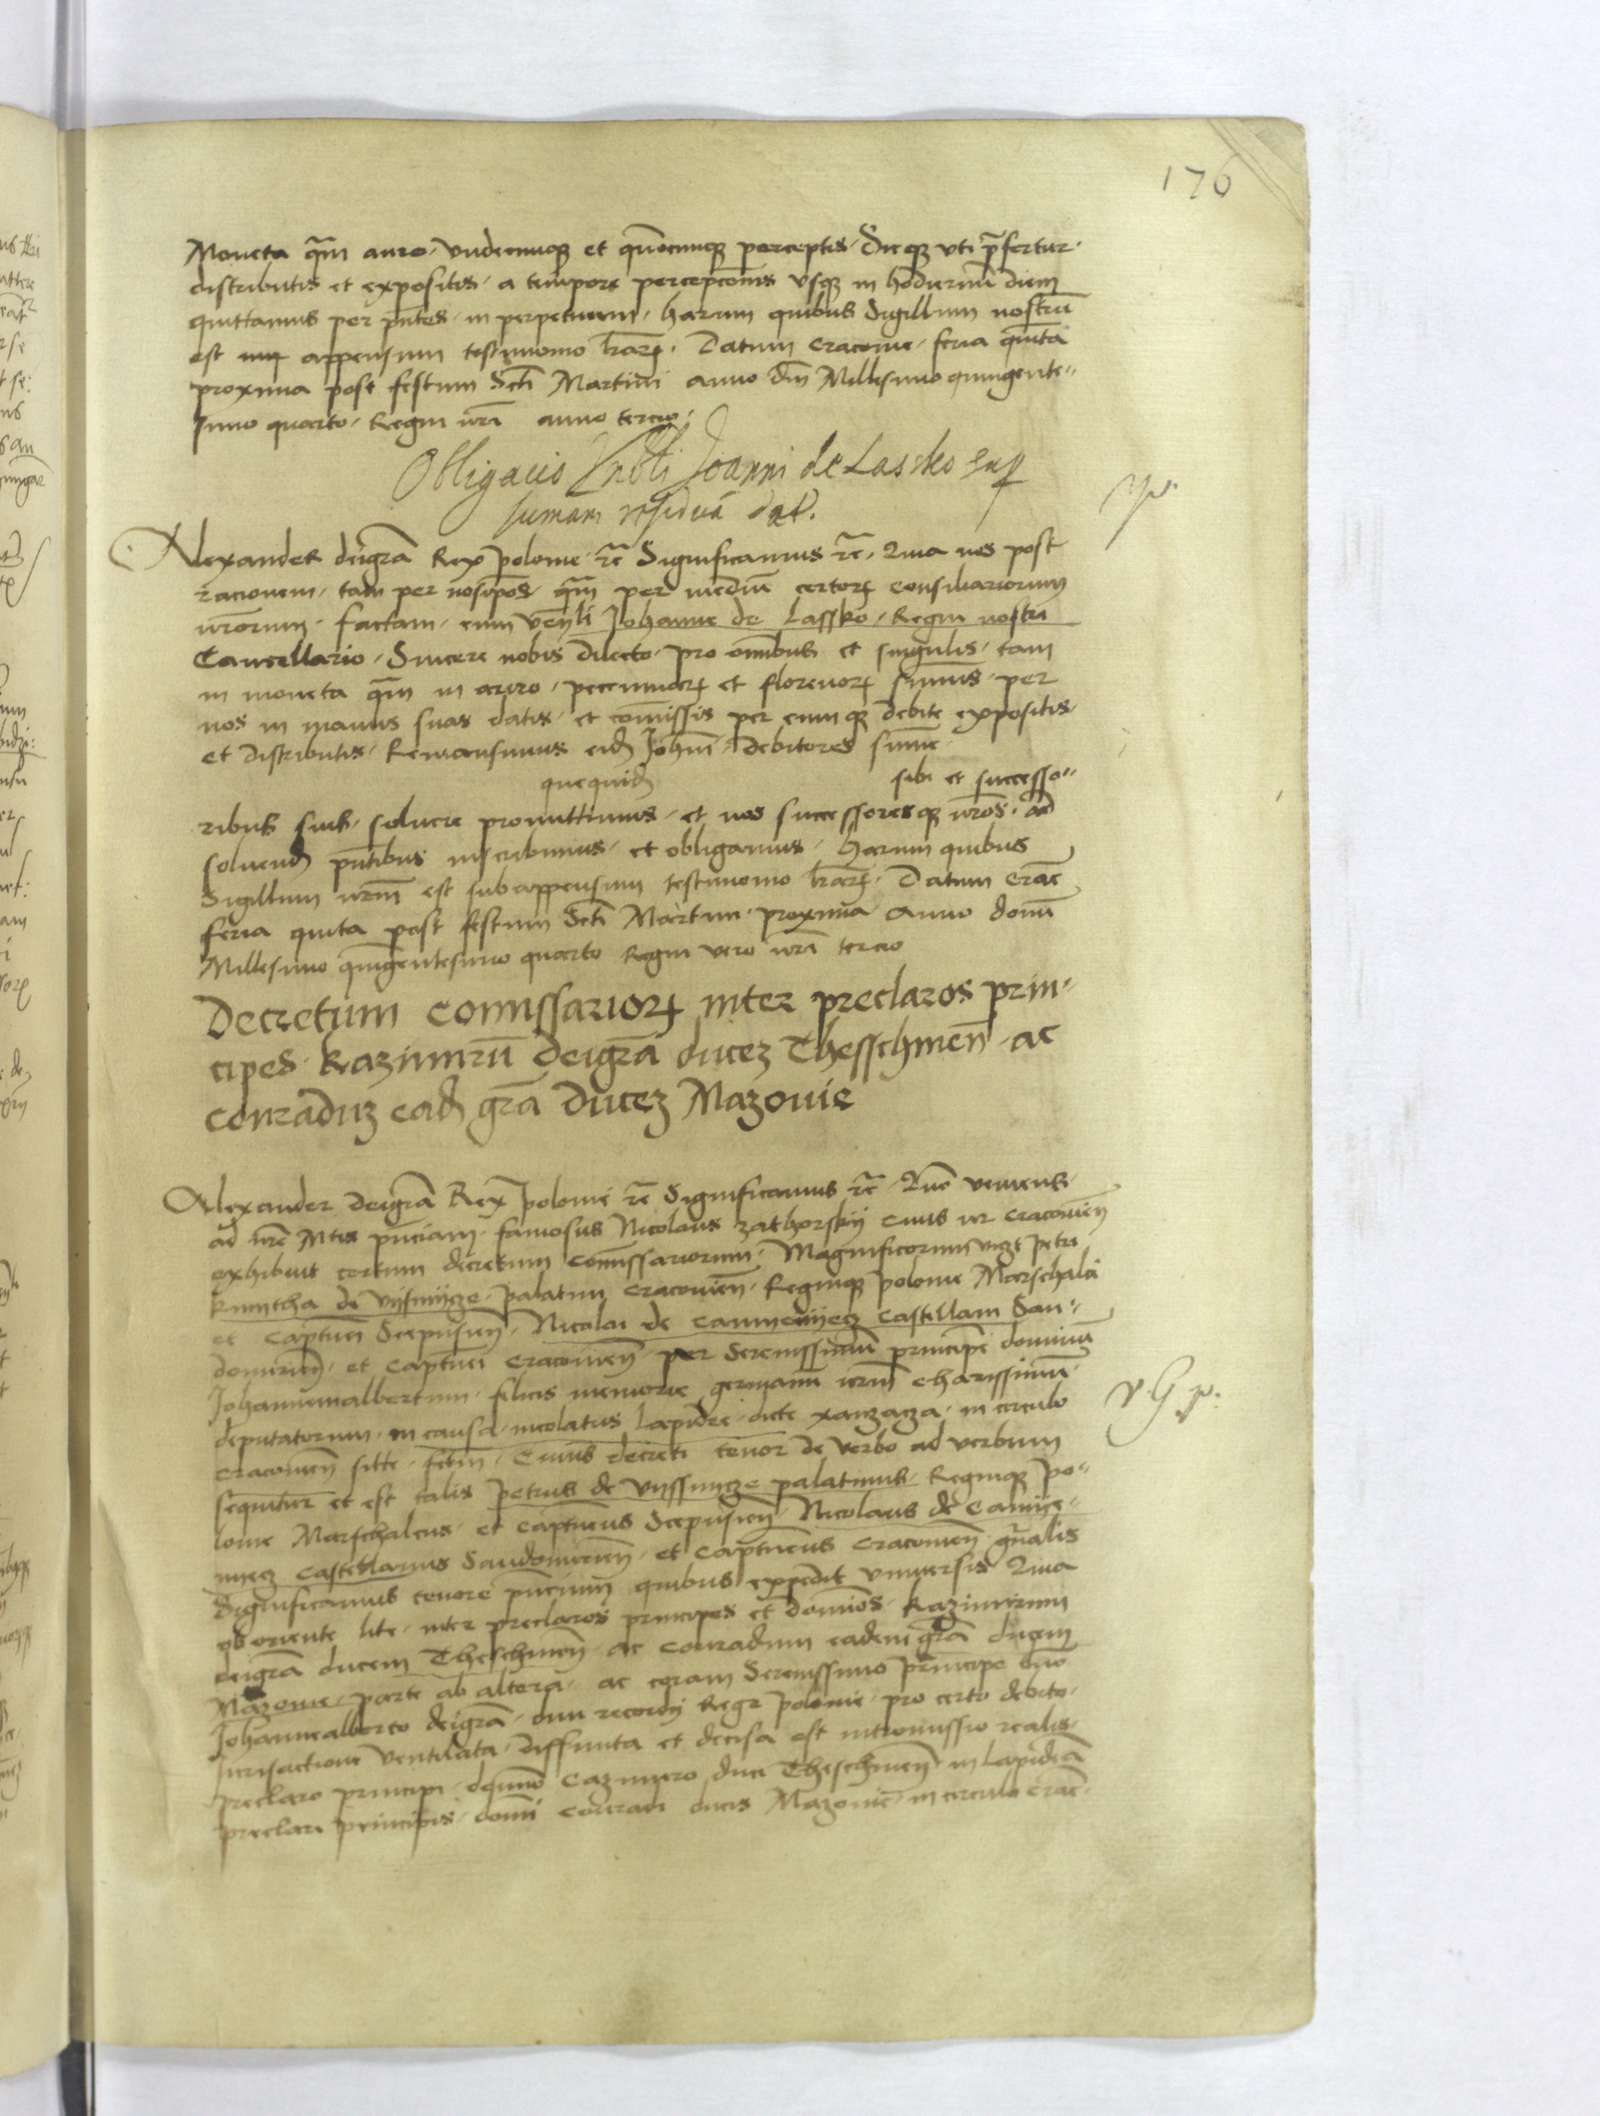 176
Moneta qm̄ auro. Vndecunqz et quōcunqz perceptis. Sicqz vti p̄fertur.
distributis et expositis. a tempore percepcionis Vsqz in hodiernū diem
quittamus per p̄ntes. in perpetuum. harum quibus Sigillum nostrū
est appensum testimonio lrarꝝ. Datum Cracovie. feria quīnta
proxima post festum Sctī Martini anno dnī Millesimo quingente-
simo quarto. Regni nrī anno tercio.
Obligacio Joanni de Lassko sup
sumam residuā dat.
Alexander deigrā Rex Polonie. rc̄ Significamus rc̄. Quia nos post
racionem. tam per nosipos. qm̄ per mediū certorꝝ consiliariorum
nrōrum. factam. cum Venlī Johanne de Lassko. Regni nostri
Cancellario. Sincere nobis dilecto. pro omībus et singulis. tam
in moneta qm̄ in auro. pecuniarꝝ et florenorꝝ sumīs. per
nos in manus suas datis. et comīssis per eumqz debite expositis.
et distributis. Remansimus eidꝫ Johnī. debitores sume.
quequidꝫ sibi et successo-
ribus suis. solvere promittimus. et nos successoresqz nrōs. ad
solvendꝫ p̄ntibus inscribimus. et obligamus. harum quibus
Sigillum nrm̄ est subappensum testimonio lrarꝝ. Datum Crac̄
feria quita post festum Sctī Martini. proxima anno domī
Millesimo quingentesimo quarto Regni vero nrī tercio
Decretum comissariorꝝ inter preclaros prin-
cipes. Kazimirū deigrā ducez Thesschinen̄. ac
Conradūz eadꝫ grā ducez Mazovie
Alexander deigrā Rex Polonie rc̄ Significamus rc̄. Quō veniens.
ad nrē Mtis p̄nciam. famosus Nicolaus Zathorskij Civis nr Cracovien̄
exhibuit certum decretum Comissariorum. Magnificorum vꝫt Petri
Kmytha de Vyssnijcze. palatini Cracovien̄. Regniqz Polonie Marschalci
et Captnei Scepusien̄. Nicolai de Camyenijecz Castellani San-
domirien̄. et Captnei Cracovien̄. per Serenissimū principē dominū
Johannemalbertum. felicis memorie germanū nrm̄ charissimū.
deputatorum. in causa. lapidee. dicte. in circulo
Cracovien̄ site. fctm̄. Cuius decreti tenor de verbo ad verbum
sequitur et est talis Petrus de Vyssnijcze palatinus. Regniqz Po-
lonie Marschalcus. et Captneus Scepusien̄. Nicolaus de Camije-
nijecz Castellanus Sandomirien̄. et Captneus Cracovien̄ gn̄alis
Significamus tenore p̄ncium quibus expedit vniversis. Quia
oboriente lite. inter preclaros principes et domīos. Kazimirum
deigrā ducem Theschinen̄. ac Conradum eadem grā ducem
Mazovie. parte ab altera. ac coram Serenissimo principe dno
Johannealberto deigrā. divi recordij Rege Polonie. pro certo debito.
Jurisactione Ventilata. diffinita et decisa est intromissio realis.
preclaro principi. domīo Cazimiro duci Theschinen̄ in lapideā
preclari principis. domī Conradi ducis Mazovie in circulo Crac̄.